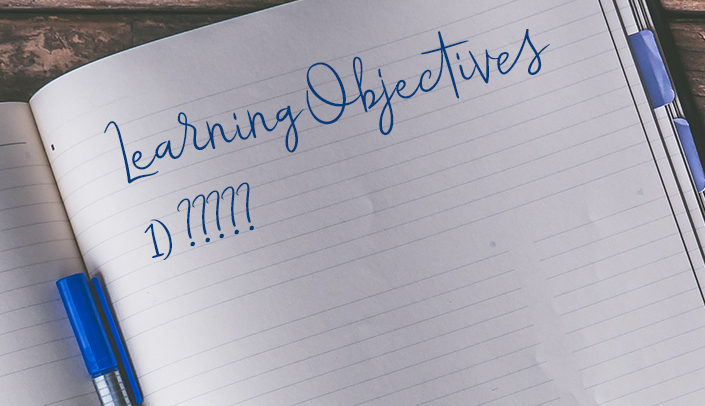 Learning Objectives
1) ?????